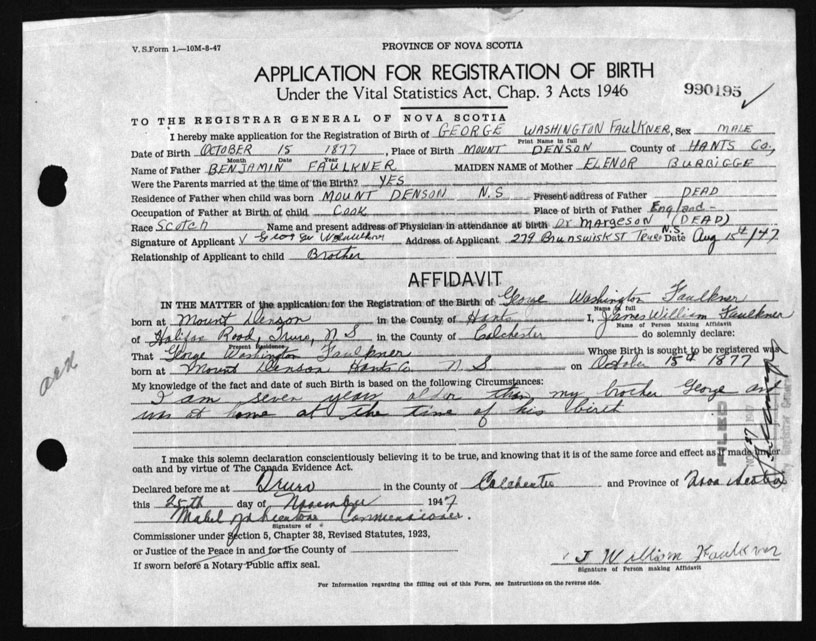 V. S. Form 1.—10M-8-47
PROVINCE OF NOVA SCOTIA
APPLICATION FOR REGISTRATION OF BIRTH
Under the Vital Statistics Act, Chap. 3 Acts 1946
990195 ✓
TO THE REGISTRAR GENERAL OF NOVA SCOTIA
I hereby make application for the Registration of Birth of GEORGE WASHINGTON FAULKNER, Sex MALE
Print Name in full
Date of Birth OCTOBER 15 1877, Place of Birth MOUNT DENSON County of HANTS Co,
Month Date Year
Name of Father BENJAMIN FAULKNER MAIDEN NAME of Mother ELENOR BURBIGGE
Were the Parents married at the time of the Birth? YES
Residence of Father when child was born MOUNT DENSON N.S Present address of Father DEAD
Occupation of Father at Birth of child COOK Place of birth of Father England-
Race Scotch Name and present address of Physician in attendance at birth Dr Margeson (DEAD)
Signature of Applicant George W Faulkner Address of Applicant 279 Brunswick St Truro N.S. Date Aug 15th/47
Relationship of Applicant to child Brother
AFFIDAVIT
IN THE MATTER of the application for the Registration of the Birth of George Washington Faulkner
Name in full
born at Mount Denson in the County of Hants I, James William Faulkner
Name of Person Making Affidavit
of Halifax Road, Truro, N S in the County of Colchester do solemnly declare:
Present Residence
That George Washington Faulkner Whose Birth is sought to be registered was
born at Mount Denson Hants Co N. S on October 15th 1877
My knowledge of the fact and date of such Birth is based on the following Circumstances:
I am seven years older than my brother George and
was at home at the time of his birth
FILED
I make this solemn declaration conscientiously believing it to be true, and knowing that it is of the same force and effect as if made under
oath and by virtue of The Canada Evidence Act.
Declared before me at Truro in the County of Colchester and Province of Nova Scotia
this 25th day of November 1947
Mabel Commissioner.
Signature of
Commissioner under Section 5, Chapter 38, Revised Statutes, 1923,
or Justice of the Peace in and for the County of
If sworn before a Notary Public affix seal.
J William Faulkner
Signature of Person making Affidavit
For Information regarding the filling out of this Form, see Instructions on the reverse side.